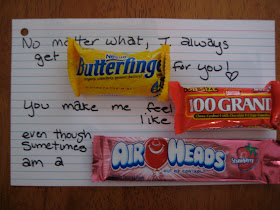 No matter what, I always
get
Nestle
Butterfinger
for you!
You make me feel
like
100 GRAND
even though
Sometimes
am a
AIRHEADS
Strawberry